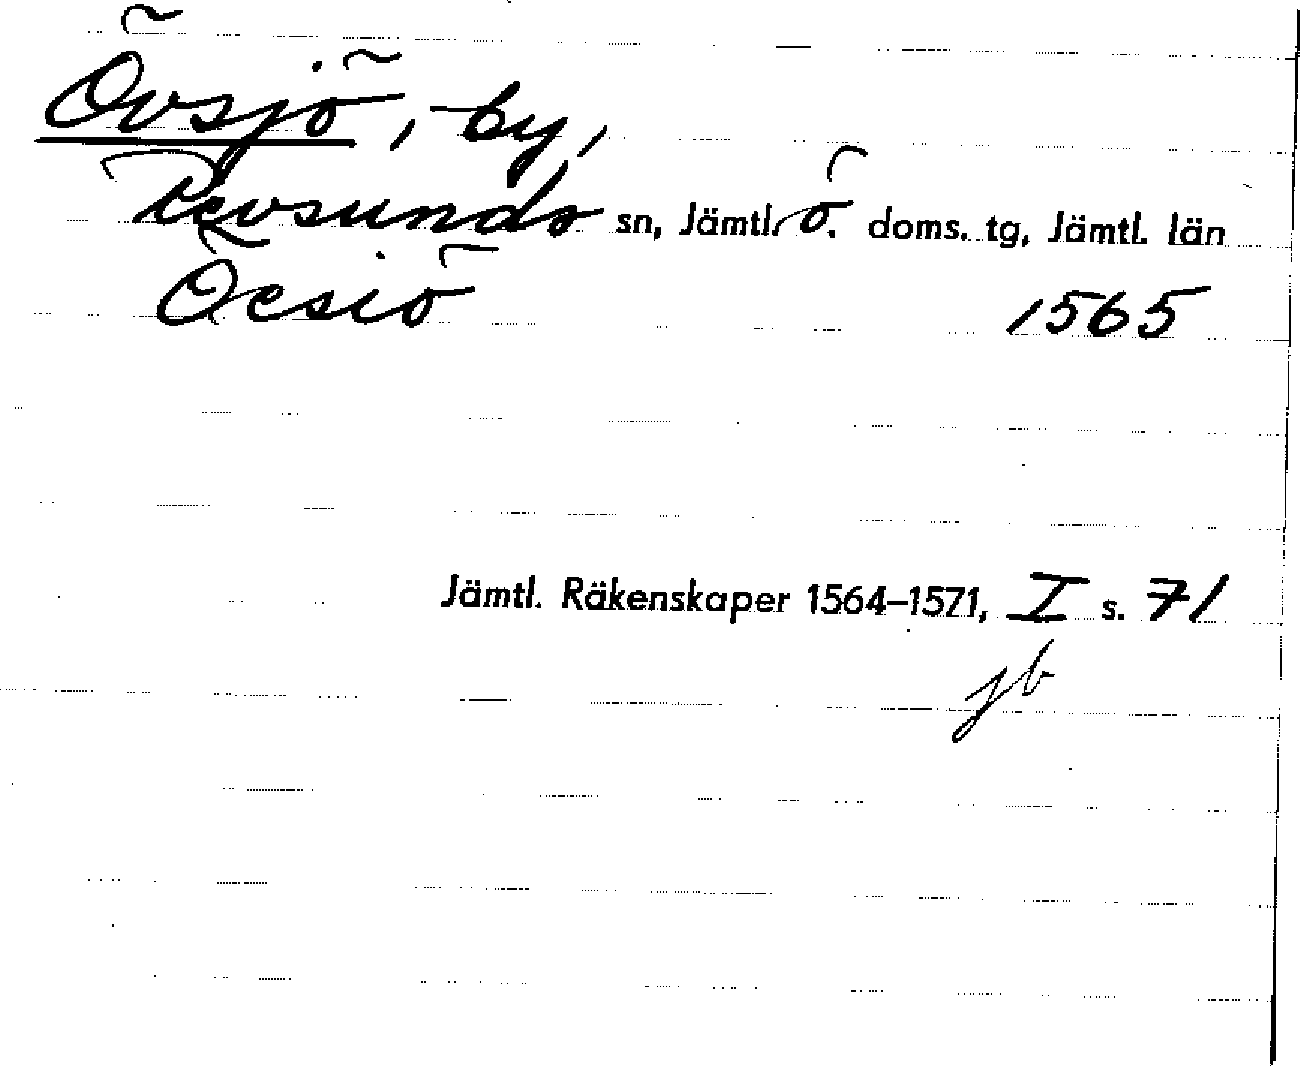 Övsjö, by,
Revsunds sn, Jämtl. ö. doms. tg, Jämtl. län
Öesiö 1565
Jämtl. Räkenskaper 1564–1571, I s. 71
jb